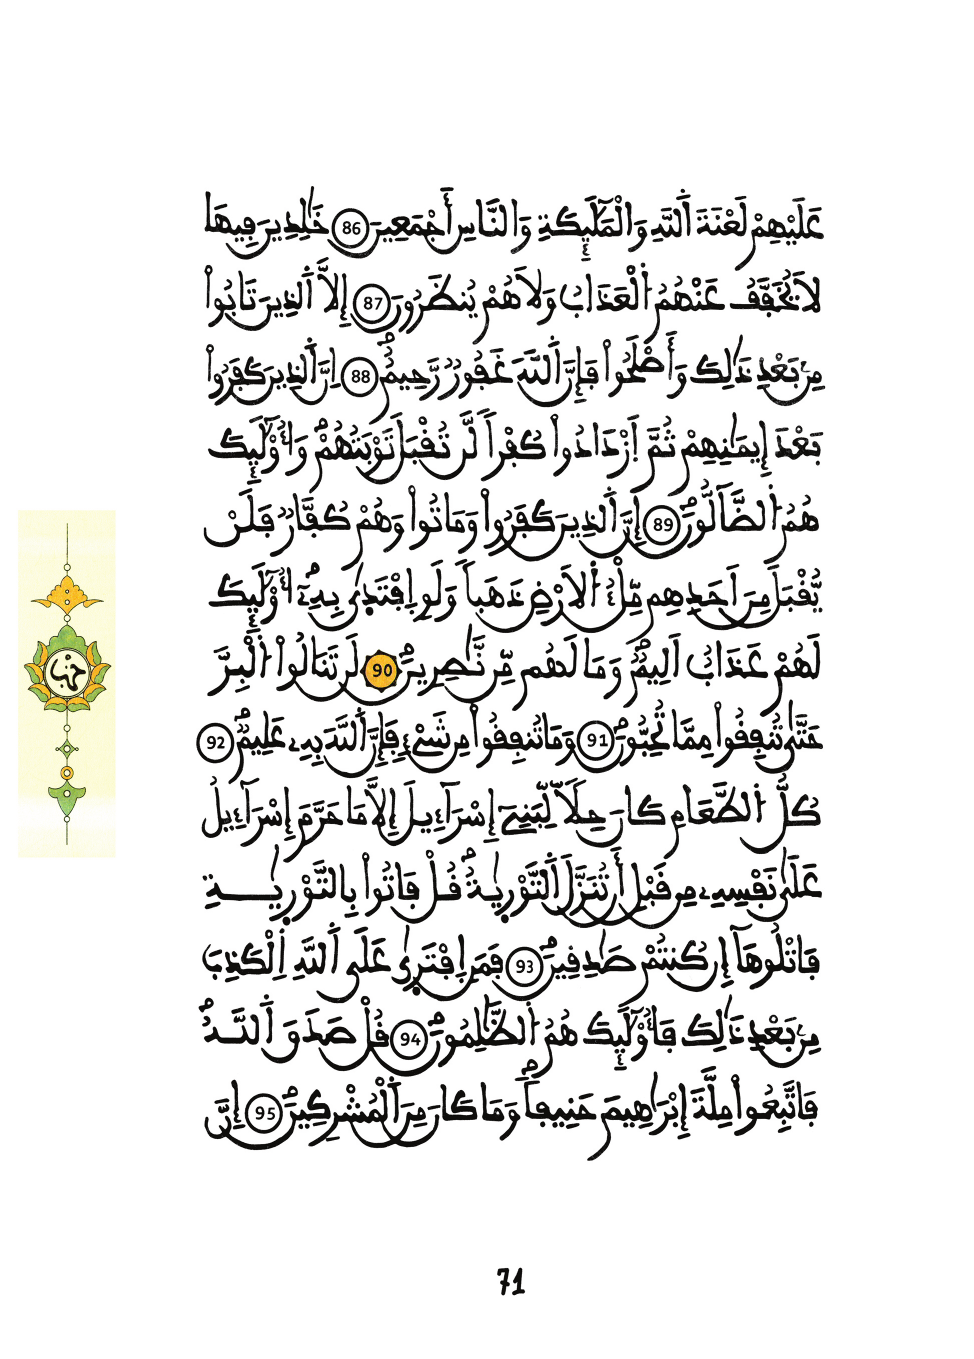 عَلَيْهِمْ لَعْنَةَ اَ۬للَّهِ وَالْمَلَٰٓئِكَةِ وَالنَّاسِ أَجْمَعِينَ 86 خَٰلِدِينَ فِيهَا
لَا يُخَفَّفُ عَنْهُمُ اُ۬لْعَذَابُ وَلَا هُمْ يُنظَرُونَ 87 إِلَّا اَ۬لذِينَ تَابُواْ
مِنۢ بَعْدِ ذَٰلِكَ وَأَصْلَحُواْ فَإِنَّ اَ۬للَّهَ غَفُورٞ رَّحِيمٌ 88 اِنَّ اَ۬لذِينَ كَفَرُواْ
بَعْدَ إِيمَٰنِهِمْ ثُمَّ اَ۪زْدَادُواْ كُفْراٗ لَّن تُقْبَلَ تَوْبَتُهُمْ وَأُوْلَٰٓئِكَ
هُمُ اُ۬لضَّآلُّونَ 89 إِنَّ اَ۬لذِينَ كَفَرُواْ وَمَاتُواْ وَهُمْ كُفَّارٞ فَلَنْ
يُّقْبَلَ مِنَ اَحَدِهِم مِّلْءُ اُ۬لَارْضِ ذَهَباٗ وَلَوِ اِ۪فْتَد۪يٰ بِهِۦٓ أُوْلَٰٓئِكَ
لَهُمْ عَذَابٌ اَلِيمٞ وَمَا لَهُم مِّن نَّٰصِرِينَ 90 لَن تَنَالُواْ اُ۬لْبِرَّ
حَتَّيٰ تُنفِقُواْ مِمَّا تُحِبُّونَ 91 وَمَا تُنفِقُواْ مِن شَےْءٖ فَإِنَّ اَ۬للَّهَ بِهِۦ عَلِيمٞ 92
كُلُّ اُ۬لطَّعَامِ كَانَ حِلّاٗ لِّبَنِےٓ إِسْرَآءِيلَ إِلَّا مَا حَرَّمَ إِسْرَآءِيلُ
عَلَيٰ نَفْسِهِۦ مِن قَبْلِ أَن تُنَزَّلَ اَ۬لتَّوْر۪يٰةُ قُلْ فَاتُواْ بِالتَّوْر۪يٰةِ
فَاتْلُوهَآ إِن كُنتُمْ صَٰدِقِينَ 93 فَمَنِ اِ۪فْتَر۪يٰ عَلَي اَ۬للَّهِ اِ۬لْكَذِبَ
مِنۢ بَعْدِ ذَٰلِكَ فَأُوْلَٰٓئِكَ هُمُ اُ۬لظَّٰلِمُونَ 94 قُلْ صَدَقَ اَ۬للَّهُ
فَاتَّبِعُواْ مِلَّةَ إِبْرَٰهِيمَ حَنِيفاٗ وَمَا كَانَ مِنَ اَ۬لْمُشْرِكِينَ 95 إِنَّ
حزب
71